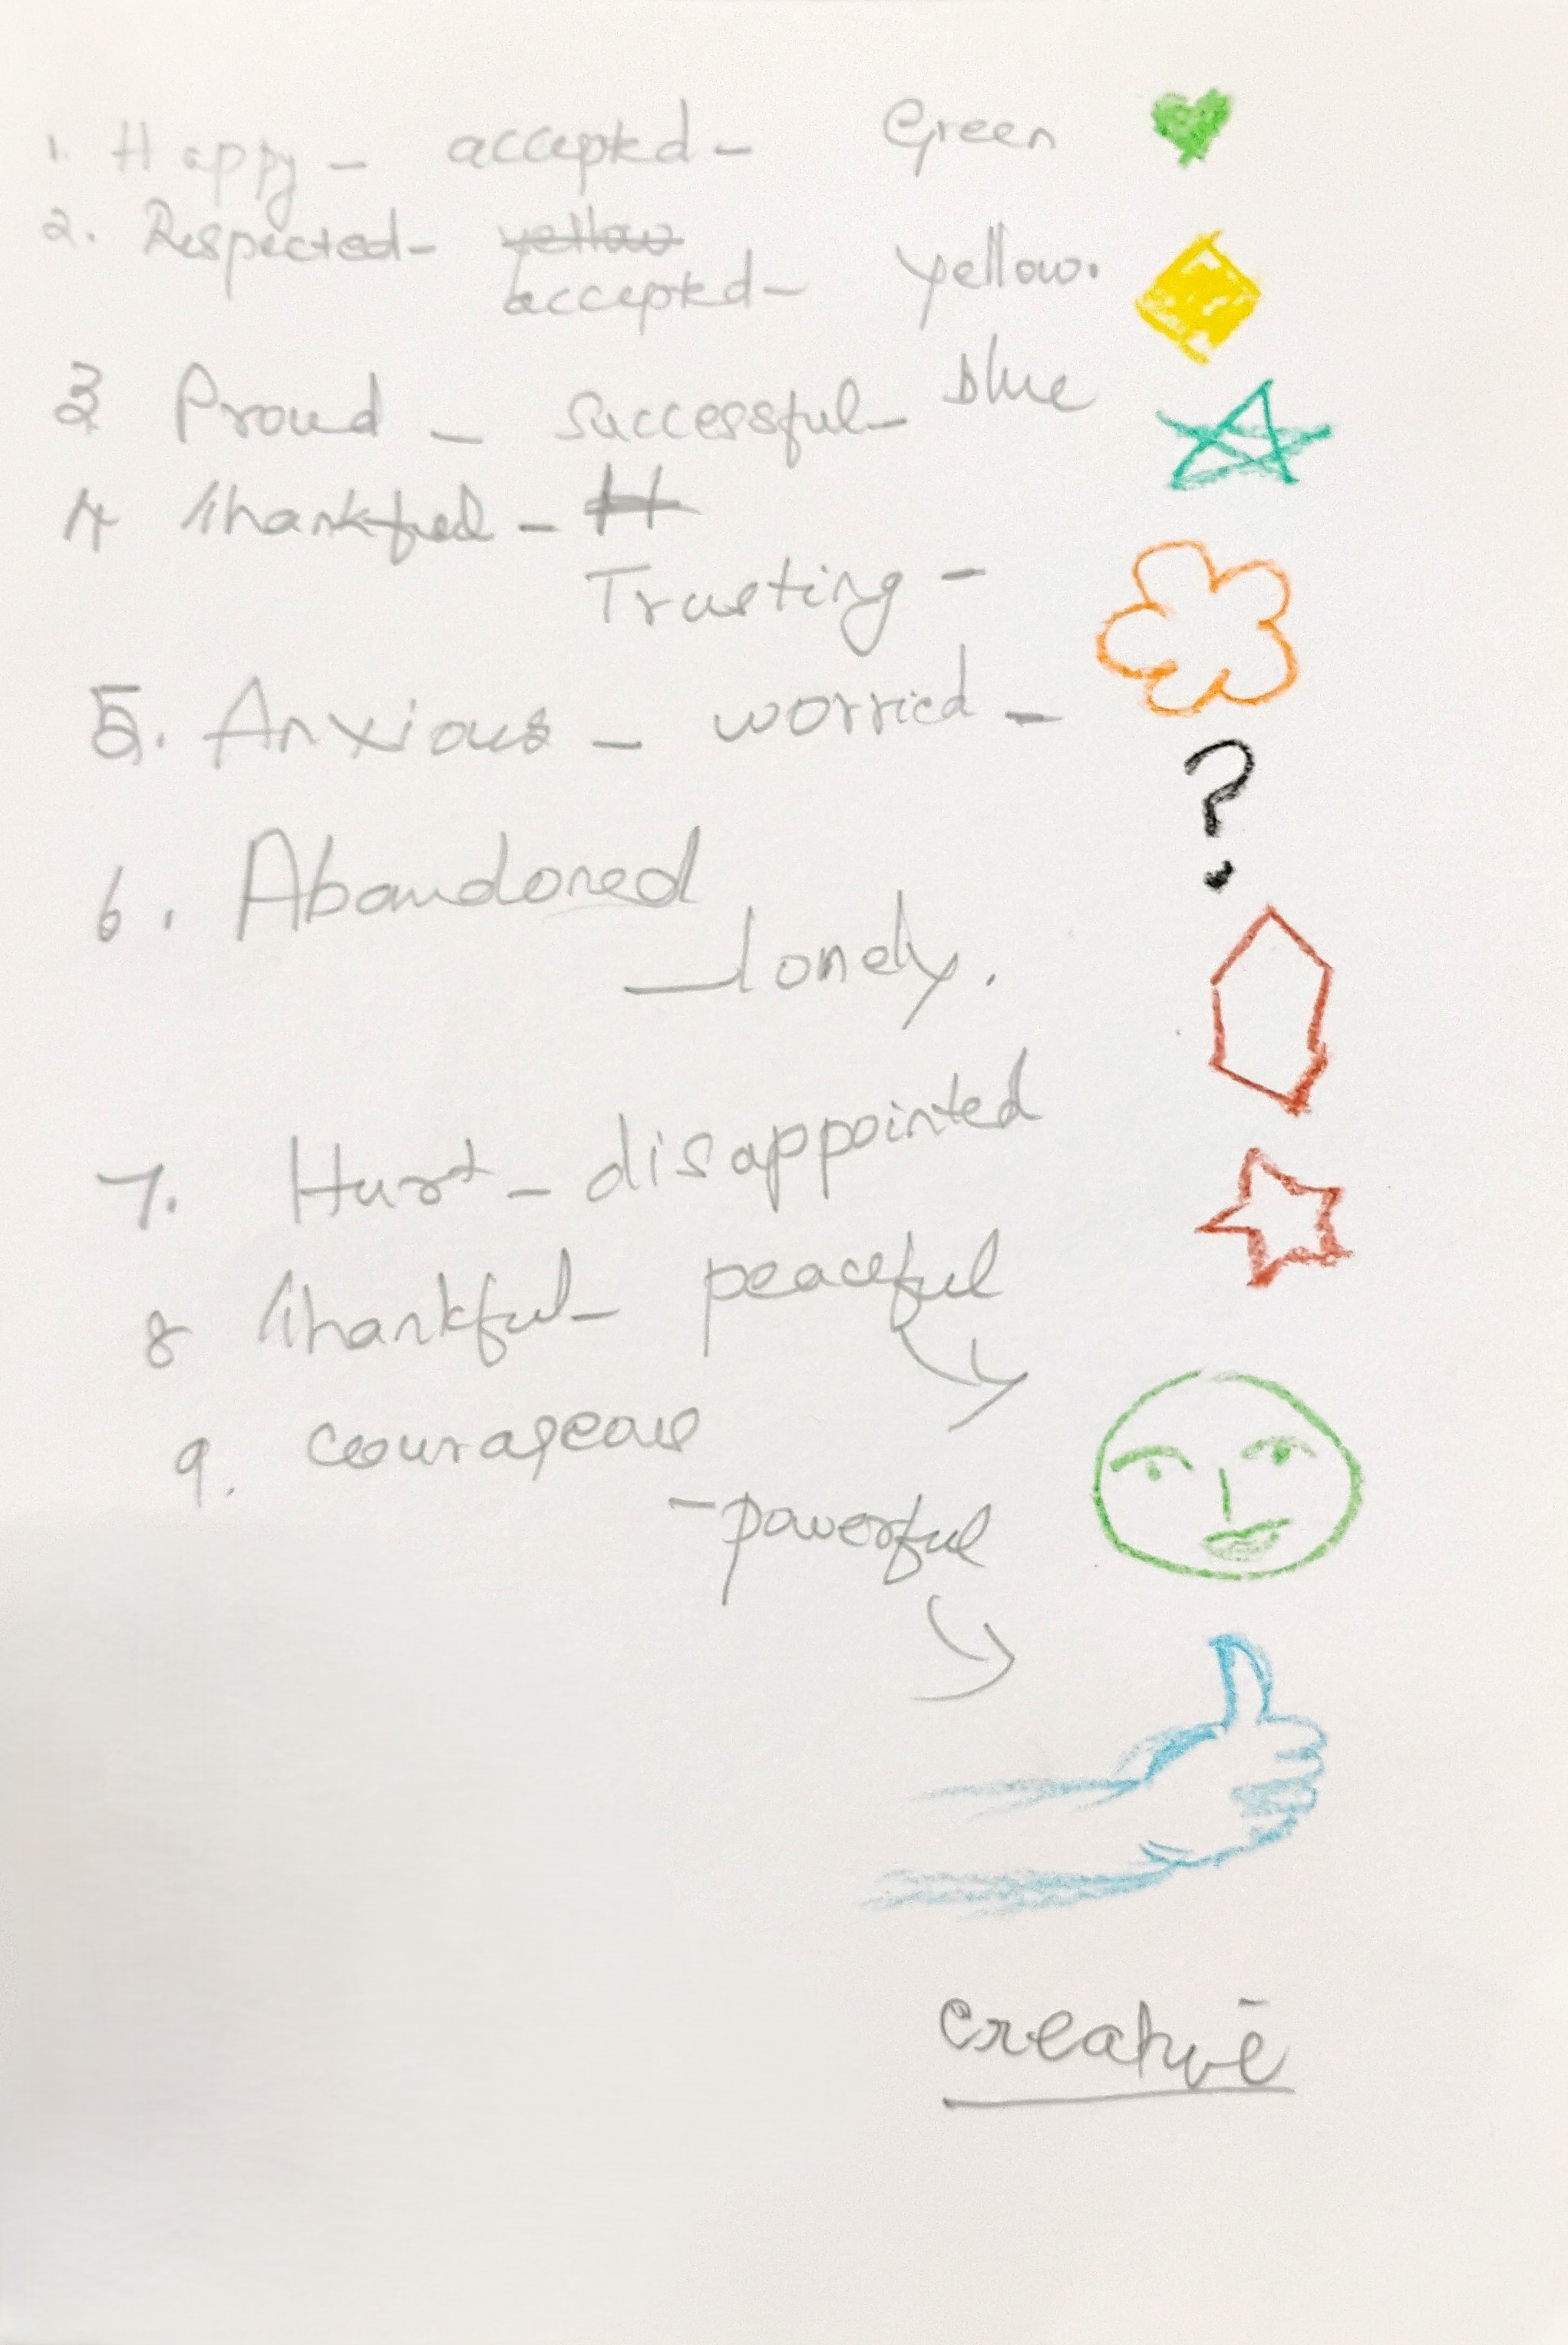 1. Happy - accepted - Green
2. Respected - yellow
accepted - yellow.
3 Proud - successful - blue
4 Thankful - H
Trusting -
5. Anxious - worried -
?
6. Abandoned
- lonely.
7. Hurt - disappointed
8 Thankful - peaceful
9. courageous
- powerful
creative